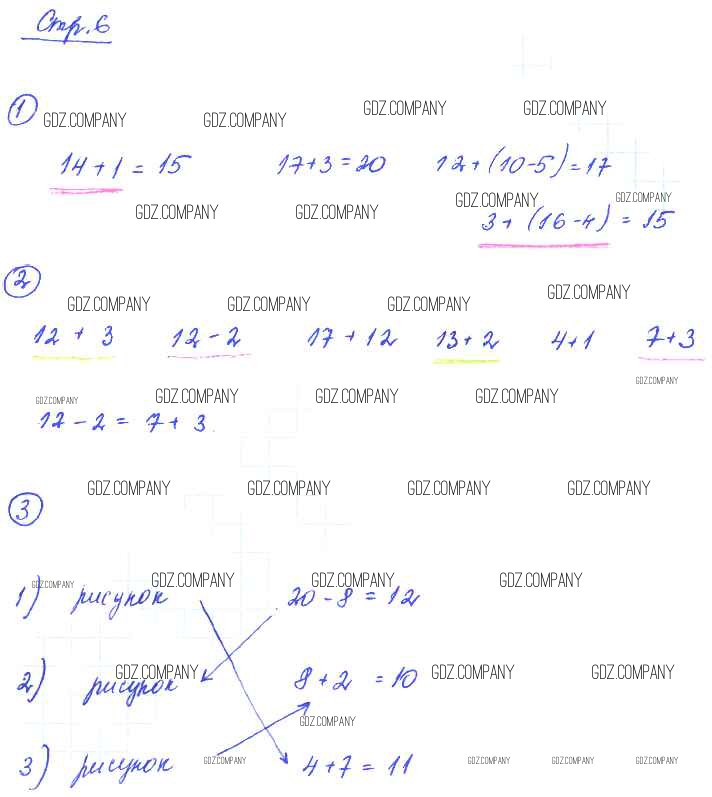 Стр. 6
1
GDZ.COMPANY GDZ.COMPANY GDZ.COMPANY GDZ.COMPANY
14 + 1 = 15 17 + 3 = 20 12 + (10 - 5) = 17
GDZ.COMPANY GDZ.COMPANY GDZ.COMPANY GDZ.COMPANY
3 + (16 - 4) = 15
2
GDZ.COMPANY GDZ.COMPANY GDZ.COMPANY GDZ.COMPANY
12 + 3 12 - 2 17 + 12 13 + 2 4 + 1 7 + 3
GDZ.COMPANY GDZ.COMPANY GDZ.COMPANY GDZ.COMPANY GDZ.COMPANY
12 - 2 = 7 + 3.
GDZ.COMPANY GDZ.COMPANY GDZ.COMPANY GDZ.COMPANY
3
GDZ.COMPANY GDZ.COMPANY GDZ.COMPANY GDZ.COMPANY
1) рисунок 20 - 8 = 12
GDZ.COMPANY GDZ.COMPANY GDZ.COMPANY
2) рисунок 8 + 2 = 10
GDZ.COMPANY
3) рисунок GDZ.COMPANY 4 + 7 = 11 GDZ.COMPANY GDZ.COMPANY GDZ.COMPANY